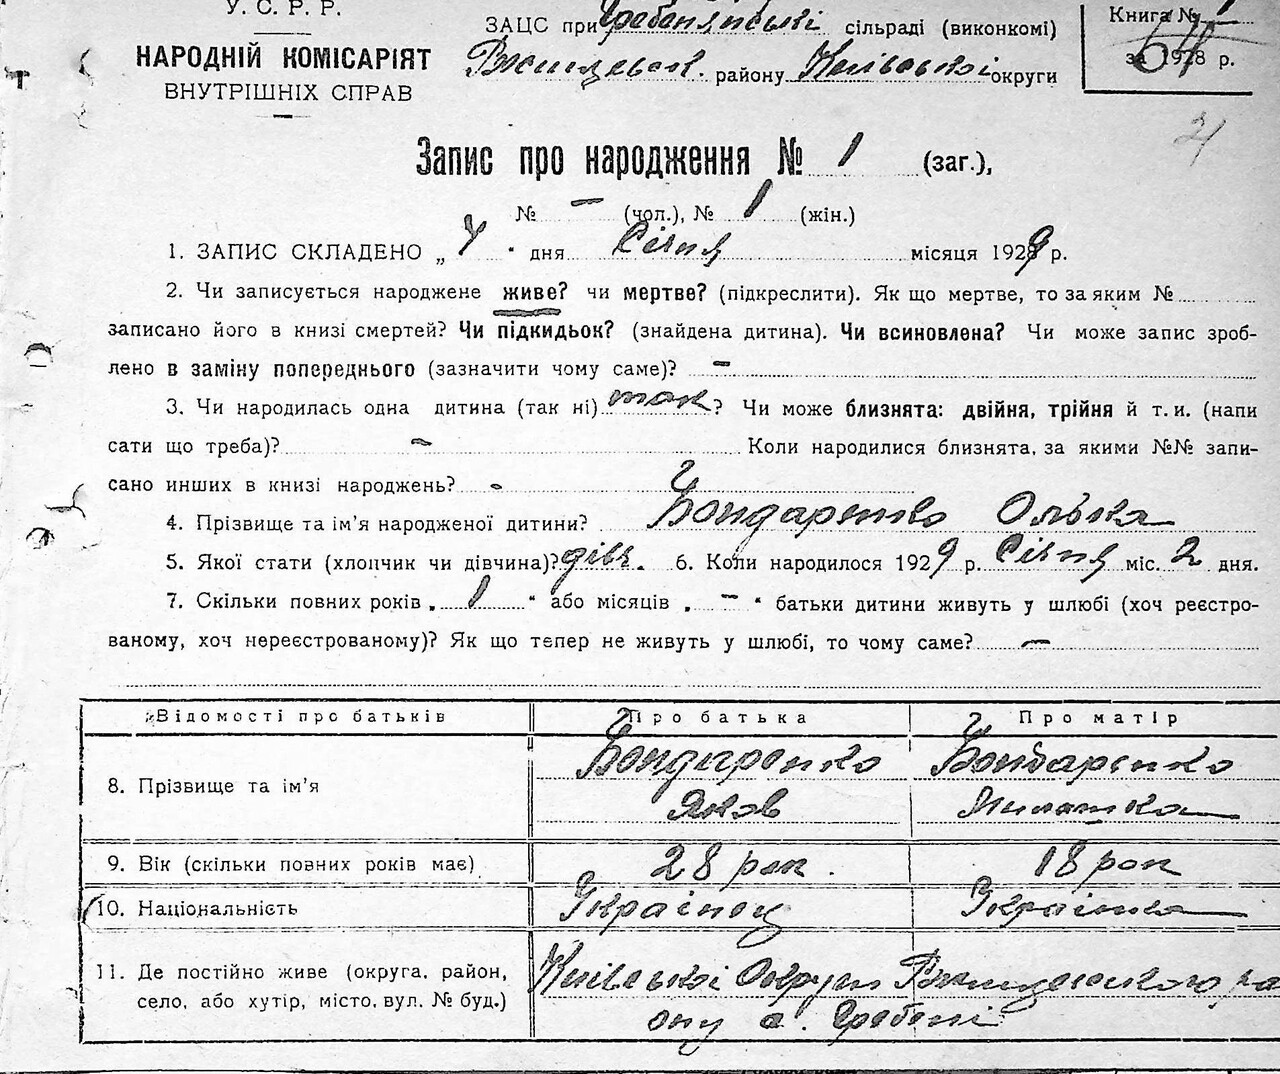 У. С. Р. Р.
НАРОДНІЙ КОМІСАРІЯТ
ВНУТРІШНІХ СПРАВ
ЗАЦС при Гребенянській сільраді (виконкомі)
Ржищевськ. району Київської округи
Книга № 1
за 1928 р.
Запис про народження № 1 (заг.),
№ — (чол.), № 1 (жін.)
1. ЗАПИС СКЛАДЕНО „ 4 " дня Січня місяця 1929 р.
2. Чи записується народжене живе? чи мертве? (підкреслити). Як що мертве, то за яким №
записано його в книзі смертей? Чи підкидьок? (знайдена дитина). Чи всиновлена? Чи може запис зроб-
лено в заміну попереднього (зазначити чому саме)? —
3. Чи народилась одна дитина (так ні) так ? Чи може близнята: двійня, трійня й т. и. (напи
сати що треба)? — Коли народилися близнята, за якими №№ запи-
сано инших в книзі народжень? -
4. Прізвище та ім'я народженої дитини? Бондаренко Олька
5. Якої стати (хлопчик чи дівчина)? дівч. 6. Коли народилося 1929 р. Січня міс. 2 дня.
7. Скільки повних років „ 1 " або місяців „ — " батьки дитини живуть у шлюбі (хоч реєстро-
ваному, хоч нереєстрованому)? Як що тепер не живуть у шлюбі, то чому саме? —
Відомості про батьків Про батька Про матір
8. Прізвище та ім'я Бондаренко Яков Бондаренко Милашка
9. Вік (скільки повних років має) 28 рок. 18 рок
10. Національність Українец Українка
11. Де постійно живе (округа, район,
село, або хутір, місто, вул. № буд.)
Київської Округи Ржищевського ра
ону с. Гребені